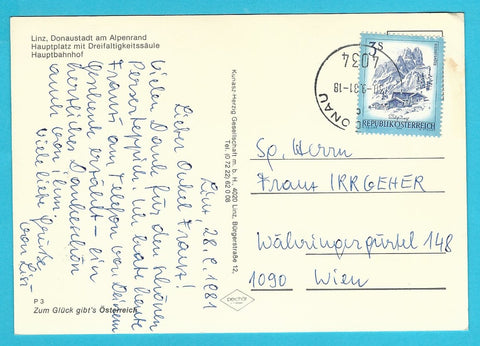 Linz, Donaustadt am Alpenrand
Hauptplatz mit Dreifaltigkeitssäule
Hauptbahnhof
Linz 28.9.1981
Lieber Onkel Franz!
Vielen Dank für den schönen
Perserteppich. Ich hatte heute
Franz am Telefon von Deinem
Geschenk erzählt - ein
herzliches Dankeschön
auch von ihm.
Viele liebe Grüße
von Lisi
P 3
Zum Glück gibt's Österreich
Kunasz Herzog Gesellschaft m. b. H., 4020 Linz, Bürgerstraße 12,
Tel. (0 72 22) 62 0 08
3s
REPUBLIK ÖSTERREICH
4034
-18
DONAU
Sp. Herrn
Franz IRRGEHER
Währingergürtel 148
1090 Wien